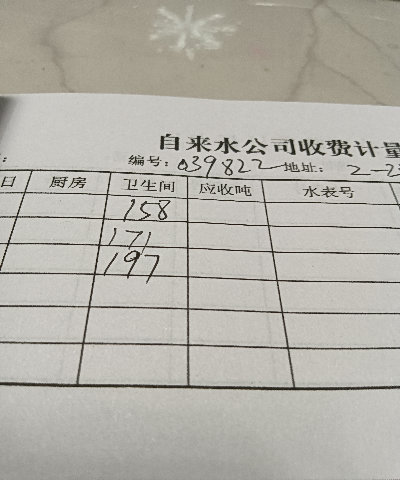 自来水公司收费计量
编号:039822 地址: 2-2
日 厨房 卫生间 应收吨 水表号
158
171
197